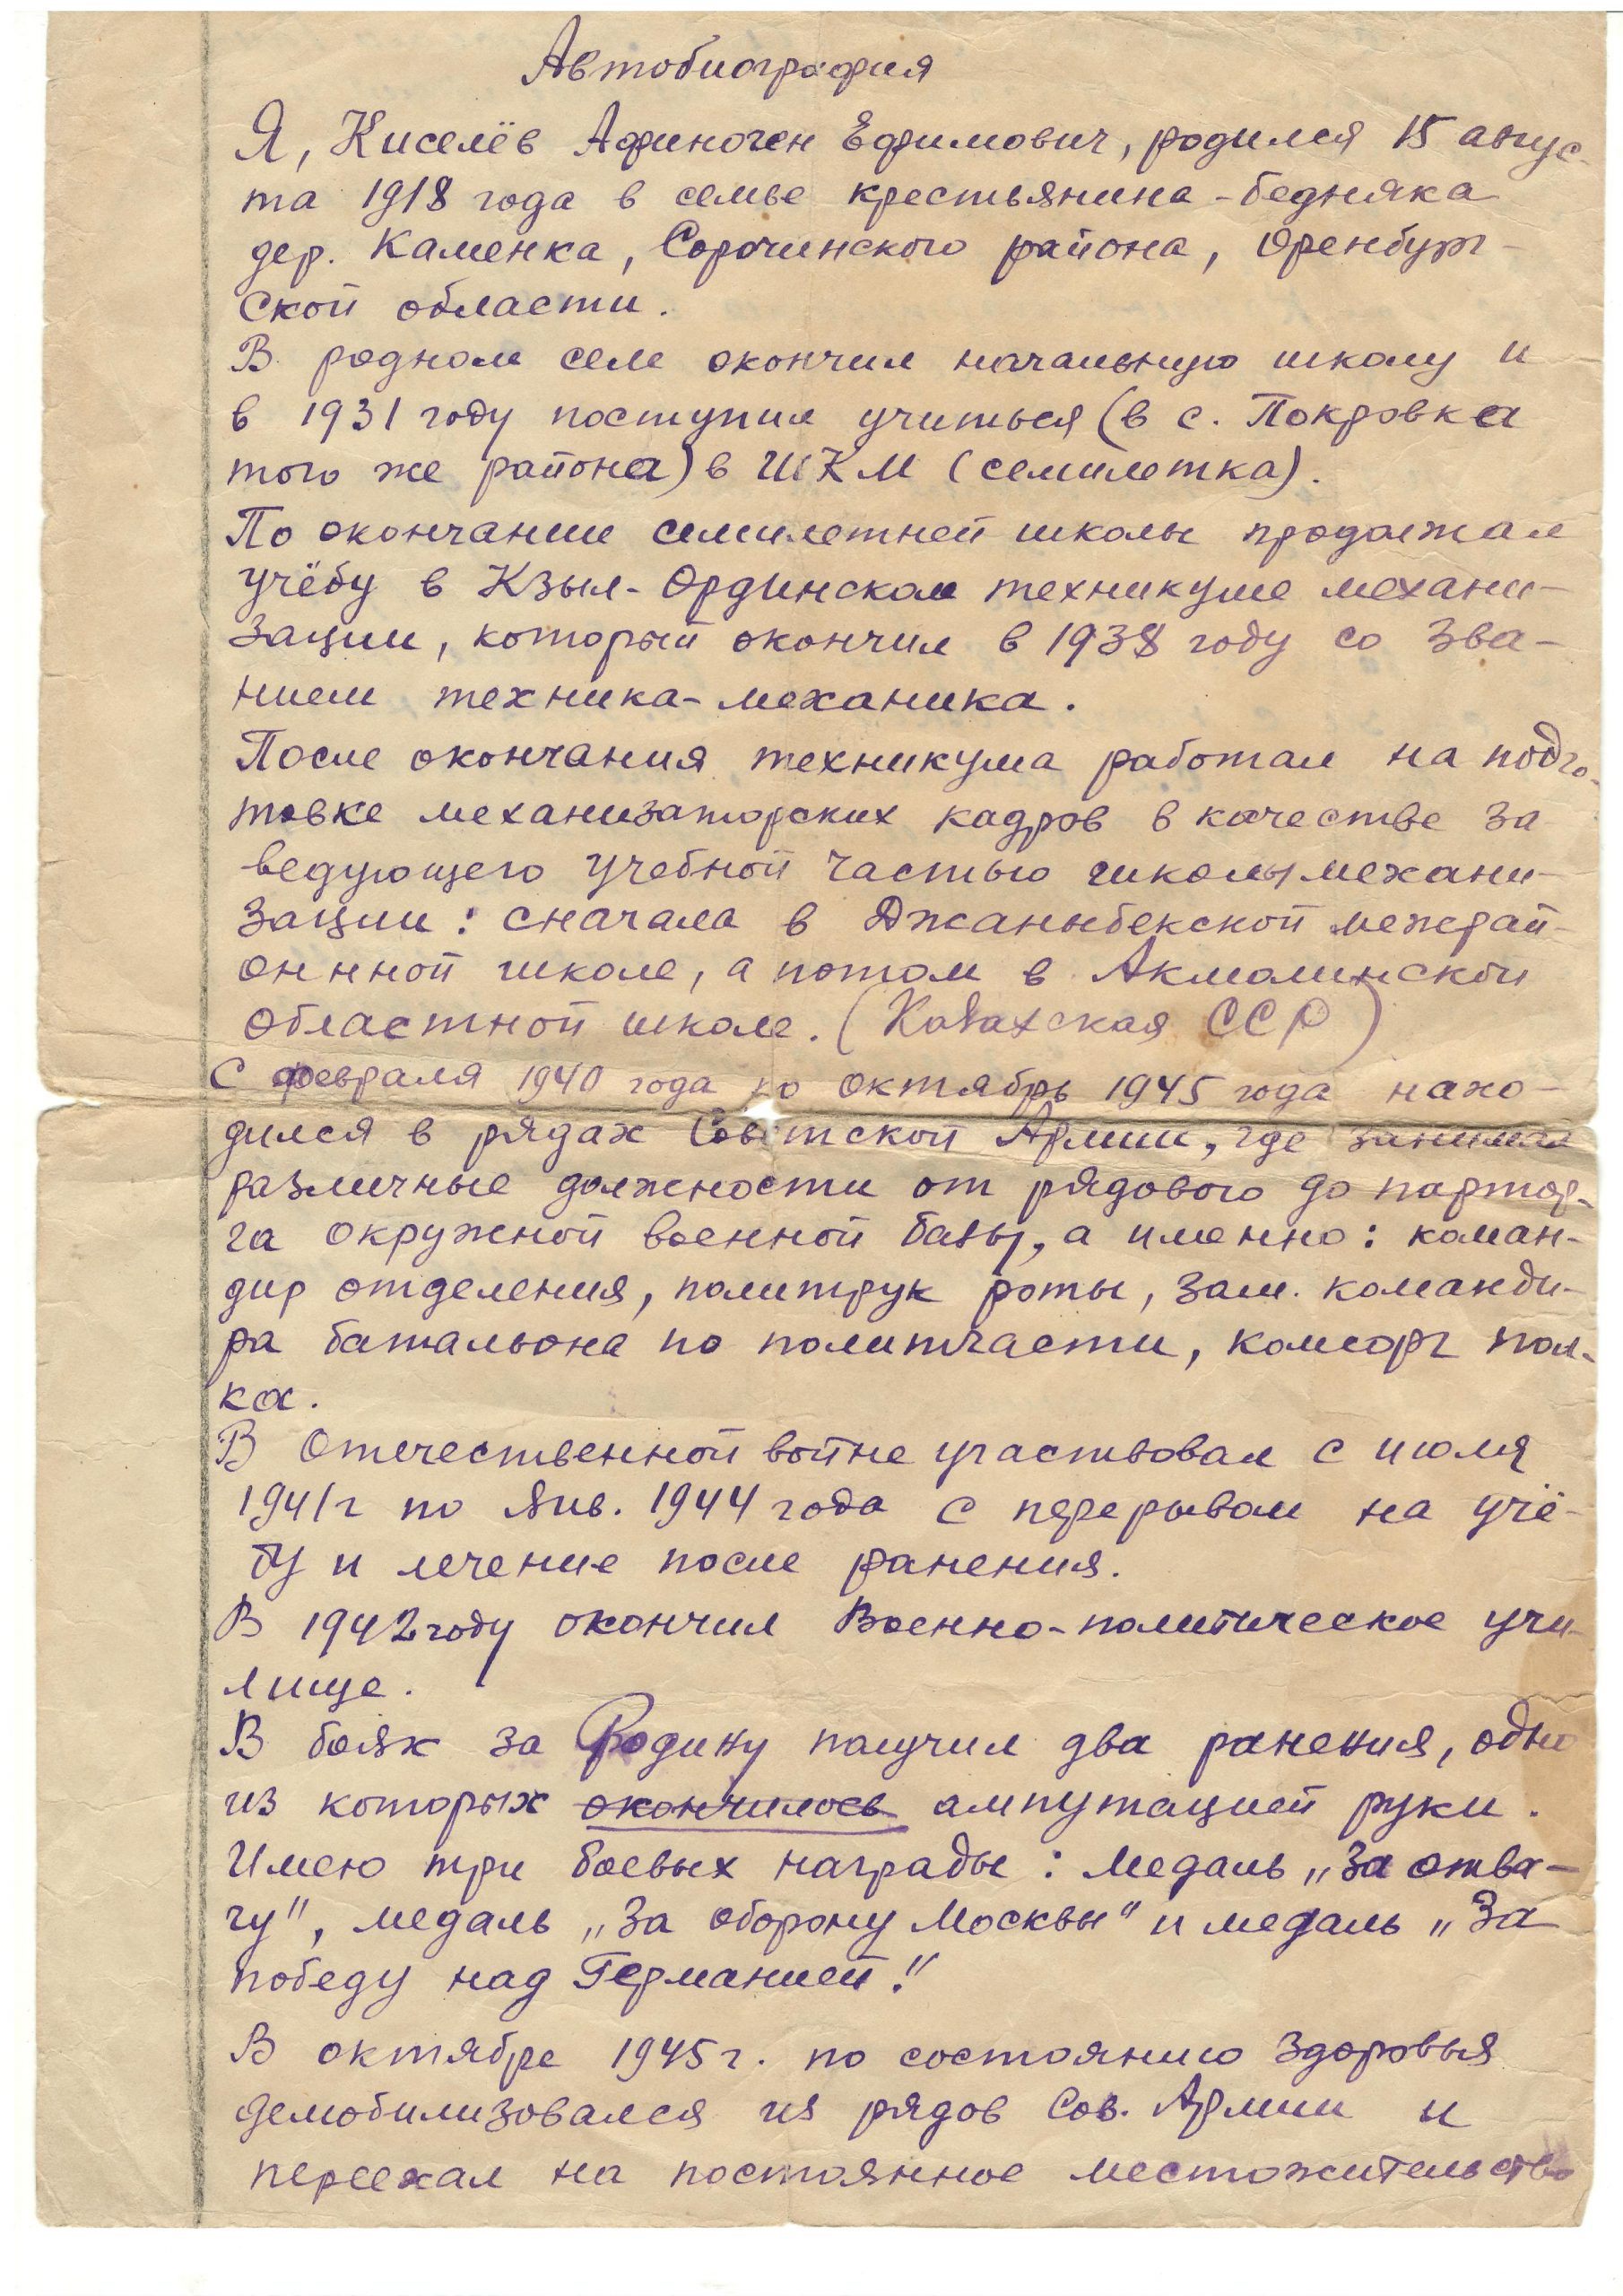 Автобиография
Я, Киселёв Афиноген Ефимович, родился 15 авгус-
та 1918 года в семье крестьянина-бедняка
дер. Каменка, Сорочинского района, Оренбург-
ской области.
В родном селе окончил начальную школу и
в 1931 году поступил учиться (в с. Покровка
того же района) в ШКМ (семилетка).
По окончании семилетней школы продолжал
учёбу в Кзыл-Ординском техникуме механи-
зации, который окончил в 1938 году со зва-
нием техника-механика.
После окончания техникума работал на подго-
товке механизаторских кадров в качестве за
ведующего учебной частью школы механи-
зации: сначала в Джаныбекской межрай-
оннной школе, а потом в Акмолинской
областной школе. (Казахская ССР)
С февраля 1940 года по октябрь 1945 года нахо-
дился в рядах Советской Армии, где занимал
различные должности от рядового до партор-
га окружной военной базы, а именно: коман-
дир отделения, политрук роты, зам. команди-
ра батальона по политчасти, комсорг пол-
ка.
В Отечественной войне участвовал с июля
1941г по янв. 1944 года с перерывом на учё-
бу и лечение после ранения.
В 1942 году окончил Военно-политическое учи-
лище.
В боях за Родину получил два ранения, одно
из которых окончилось ампутацией руки.
Имею три боевых награды: медаль „За отва-
гу", медаль „За оборону Москвы" и медаль „За
победу над Германией".
В октябре 1945г. по состоянию здоровья
демобилизовался из рядов Сов. Армии и
переехал на постоянное местожительство